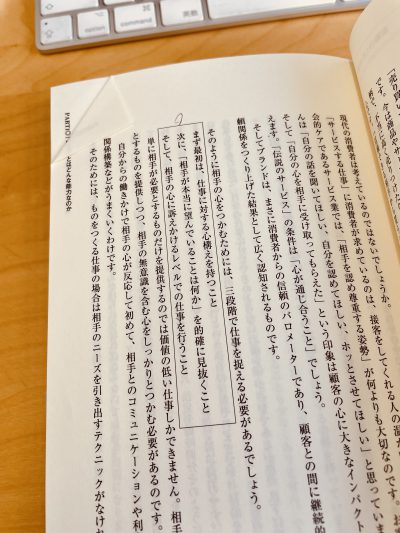 現代の消費者は考えているのではないでしょうか。
「サービスする仕事」に消費者が求めているのは、接客をしてくれる人の温か
会的ケアであるサービス業では、「相手を認め尊重する姿勢」が何よりも大切なのです。お
んは「自分の話を聞いてほしい、自分を認めてほしい、ホッとさせてほしい」と思っていま
そして「自分の心を相手に受け取ってもらえた」という印象は顧客の心に大きなインパクト
えます。「伝説のサービス」の条件は「心が通じ合うこと」でしょう。
そしてブランドは、まさに消費者からの信頼のバロメーターであり、顧客との間に継続的
頼関係をつくり上げた結果として広く認知されるものです。
そのように相手の心をつかむためには、三段階で仕事を捉える必要があるでしょう。
まず最初は、仕事に対する心構えを持つこと
次に、「相手が本当に望んでいることは何か」を的確に見抜くこと
そして、相手の心に訴えかけるレベルでの仕事を行うこと
単に相手が必要とするものだけを提供するのでは価値の低い仕事しかできません。相手
とするものを提供しつつ、相手の無意識を含む心をしっかりとつかむ必要があるのです。
自分からの働きかけで相手の心が反応して初めて、相手とのコミュニケーションや利
関係構築などがうまくいくわけです。
そのためには、ものをつくる仕事の場合は相手のニーズを引き出すテクニックがなけ
とはどんな能力なのか
option
command
control